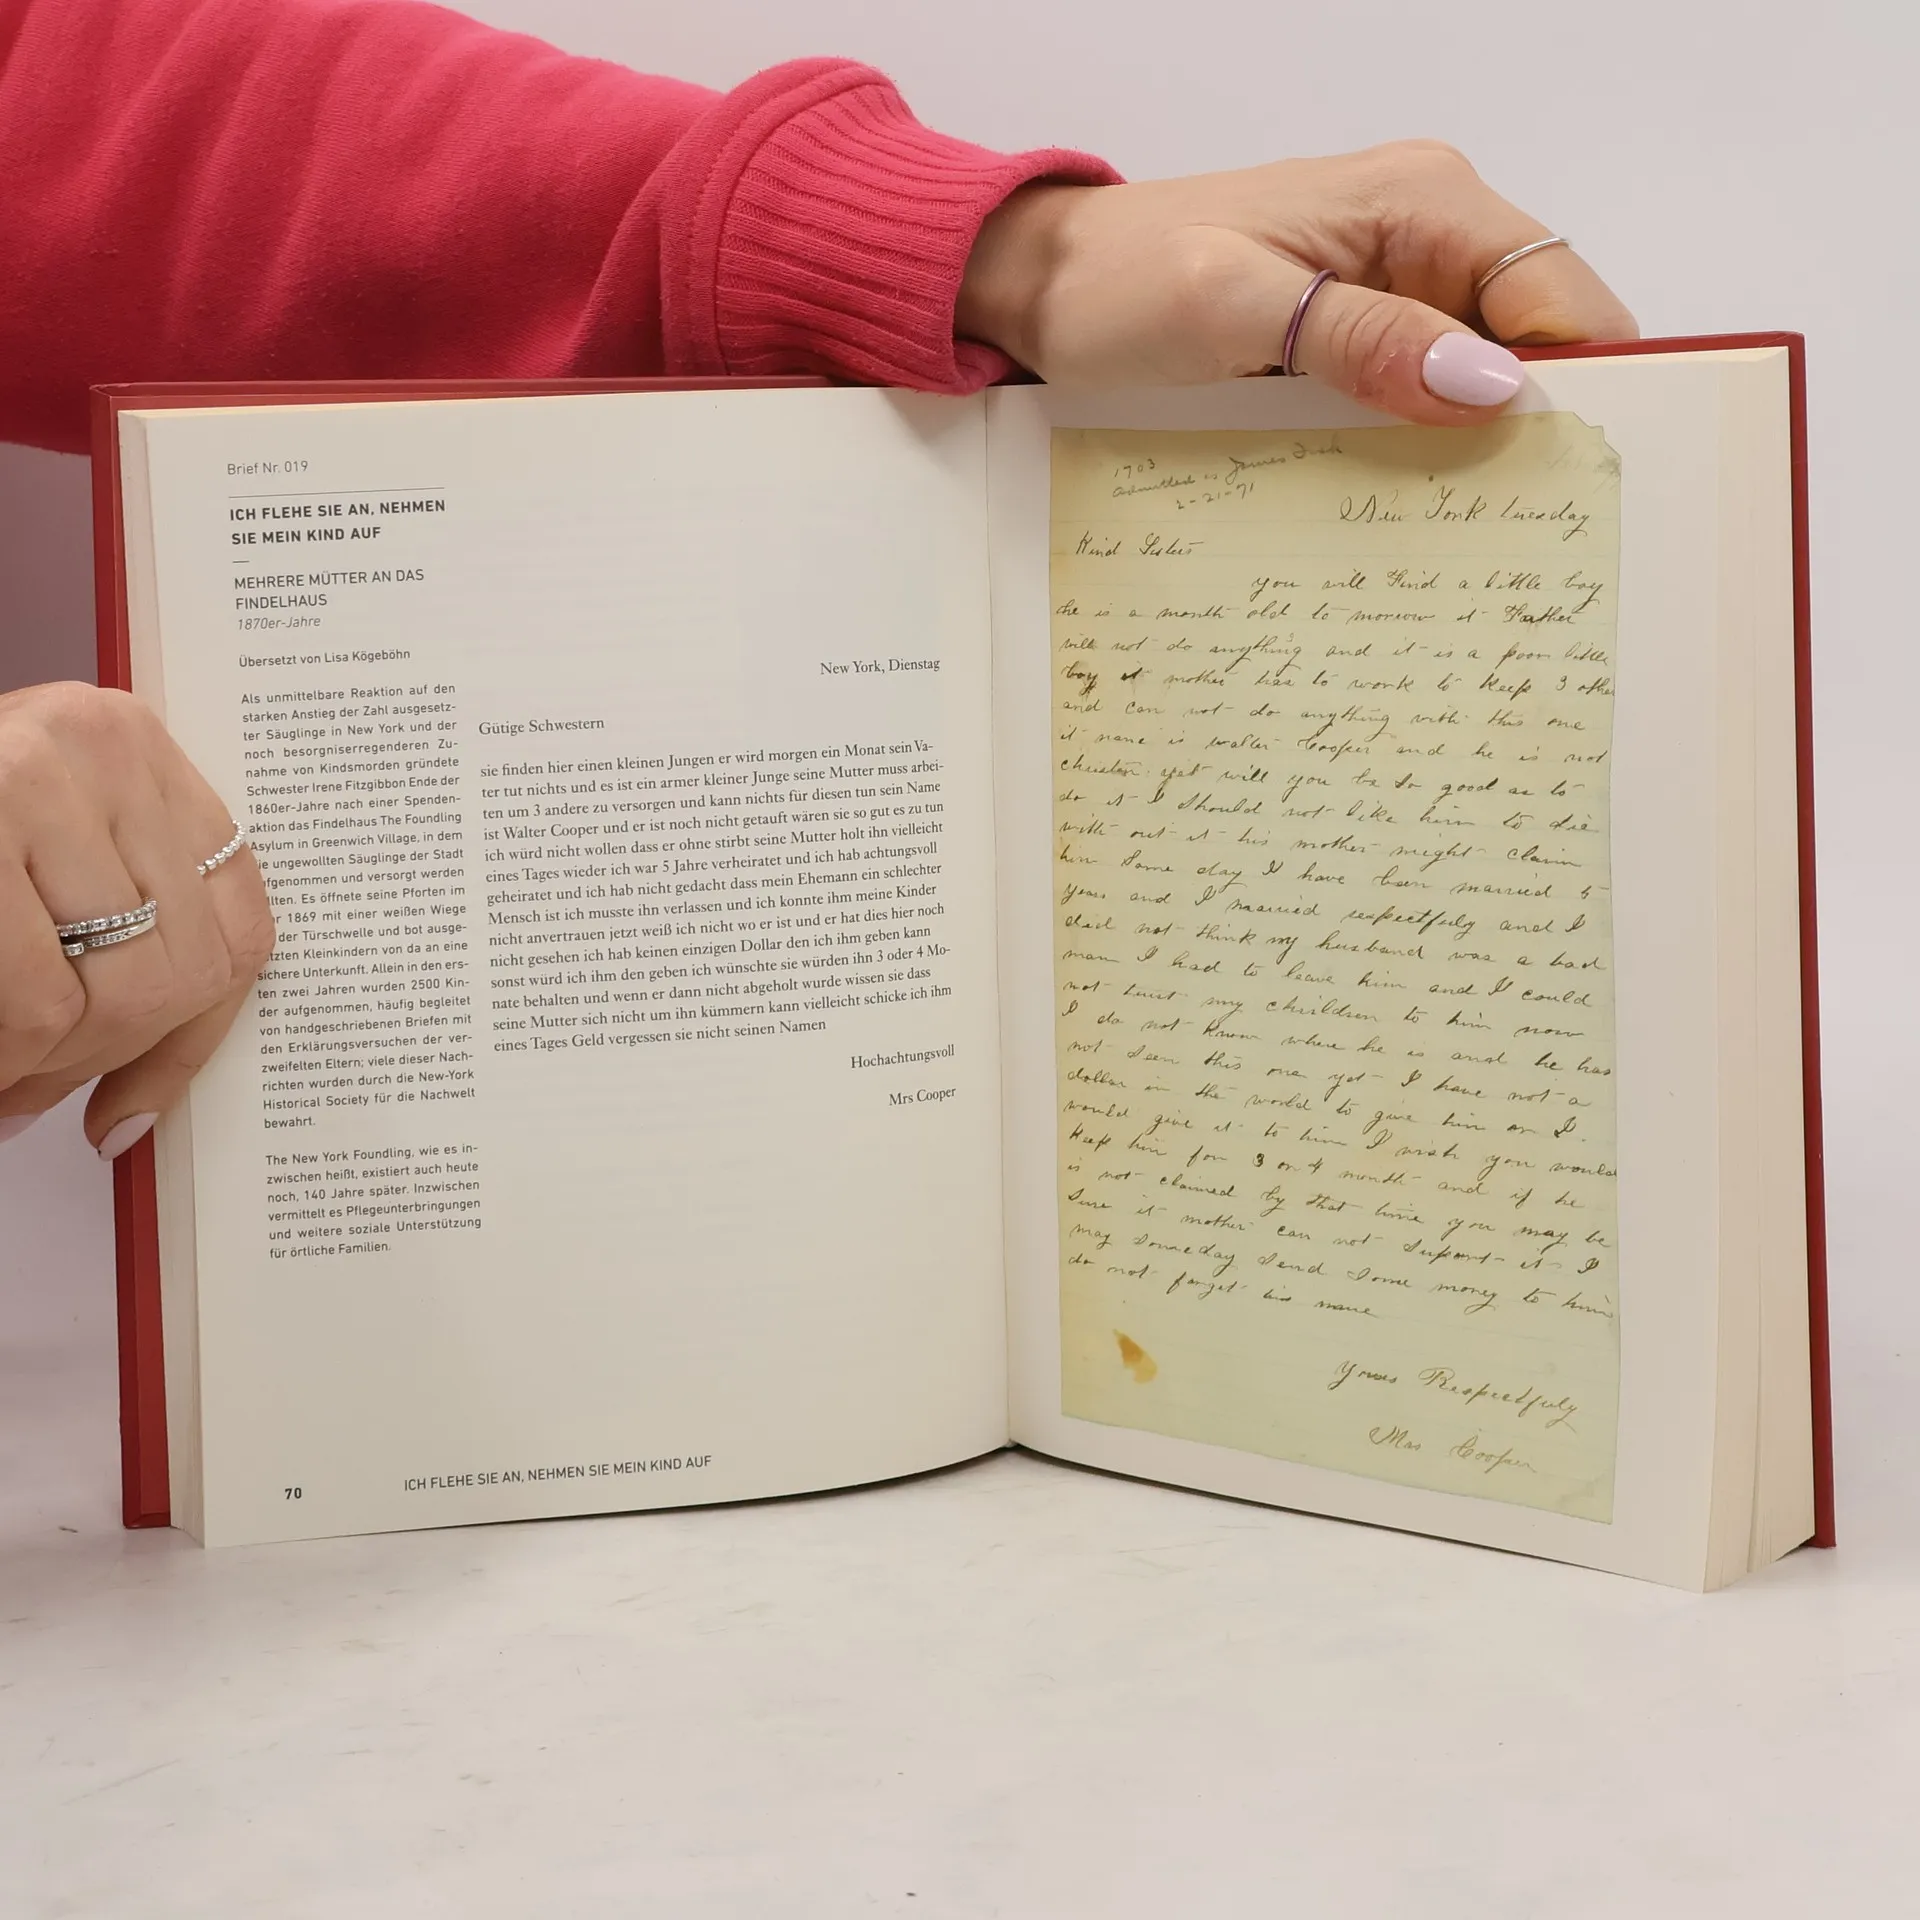 Brief Nr. 019
ICH FLEHE SIE AN, NEHMEN
SIE MEIN KIND AUF
—
MEHRERE MÜTTER AN DAS
FINDELHAUS
1870er-Jahre
Übersetzt von Lisa Kögeböhn
Als unmittelbare Reaktion auf den
starken Anstieg der Zahl ausgesetz-
ter Säuglinge in New York und der
noch besorgniserregenderen Zu-
nahme von Kindsmorden gründete
Schwester Irene Fitzgibbon Ende der
1860er-Jahre nach einer Spenden-
aktion das Findelhaus The Foundling
Asylum in Greenwich Village, in dem
ie ungewollten Säuglinge der Stadt
fgenommen und versorgt werden
llten. Es öffnete seine Pforten im
r 1869 mit einer weißen Wiege
der Türschwelle und bot ausge-
tzten Kleinkindern von da an eine
sichere Unterkunft. Allein in den ers-
ten zwei Jahren wurden 2500 Kin-
der aufgenommen, häufig begleitet
von handgeschriebenen Briefen mit
den Erklärungsversuchen der ver-
zweifelten Eltern; viele dieser Nach-
richten wurden durch die New-York
Historical Society für die Nachwelt
bewahrt.
The New York Foundling, wie es in-
zwischen heißt, existiert auch heute
noch, 140 Jahre später. Inzwischen
vermittelt es Pflegeunterbringungen
und weitere soziale Unterstützung
für örtliche Familien.
New York, Dienstag
Gütige Schwestern
sie finden hier einen kleinen Jungen er wird morgen ein Monat sein Va-
ter tut nichts und es ist ein armer kleiner Junge seine Mutter muss arbei-
ten um 3 andere zu versorgen und kann nichts für diesen tun sein Name
ist Walter Cooper und er ist noch nicht getauft wären sie so gut es zu tun
ich würd nicht wollen dass er ohne stirbt seine Mutter holt ihn vielleicht
eines Tages wieder ich war 5 Jahre verheiratet und ich hab achtungsvoll
geheiratet und ich hab nicht gedacht dass mein Ehemann ein schlechter
Mensch ist ich musste ihn verlassen und ich konnte ihm meine Kinder
nicht anvertrauen jetzt weiß ich nicht wo er ist und er hat dies hier noch
nicht gesehen ich hab keinen einzigen Dollar den ich ihm geben kann
sonst würd ich ihm den geben ich wünschte sie würden ihn 3 oder 4 Mo-
nate behalten und wenn er dann nicht abgeholt wurde wissen sie dass
seine Mutter sich nicht um ihn kümmern kann vielleicht schicke ich ihm
eines Tages Geld vergessen sie nicht seinen Namen
Hochachtungsvoll
Mrs Cooper
70
ICH FLEHE SIE AN, NEHMEN SIE MEIN KIND AUF
1703
Admitted as James
2-21-71
New York tuesday
Kind Sisters
you will Find a little boy
he is a month old to morrow it Father
will not do anything and it is a poor little
boy it mother has to work to keep 3 other
and can not do anything with this one
it name is walter Cooper and he is not
yet will you be So good as to
do it I Should not like him to die
with out it his mother might claim
him Some day I have been married 5
years and I married respectfuly and I
did not think my husband was a bad
man I had to leave him and I could
not trust my children to him now
I do not know where he is and he has
not Seen this one yet I have not a
dollar in the world to give him or I
would give it to him I wish you would
Keep him for 3 or 4 month and if he
is not claimed by that time you may be
Sure it mother can not Suport it I
may Someday Send Some money to him
do not forget his name
Yours Respectfuly
Mrs Cooper